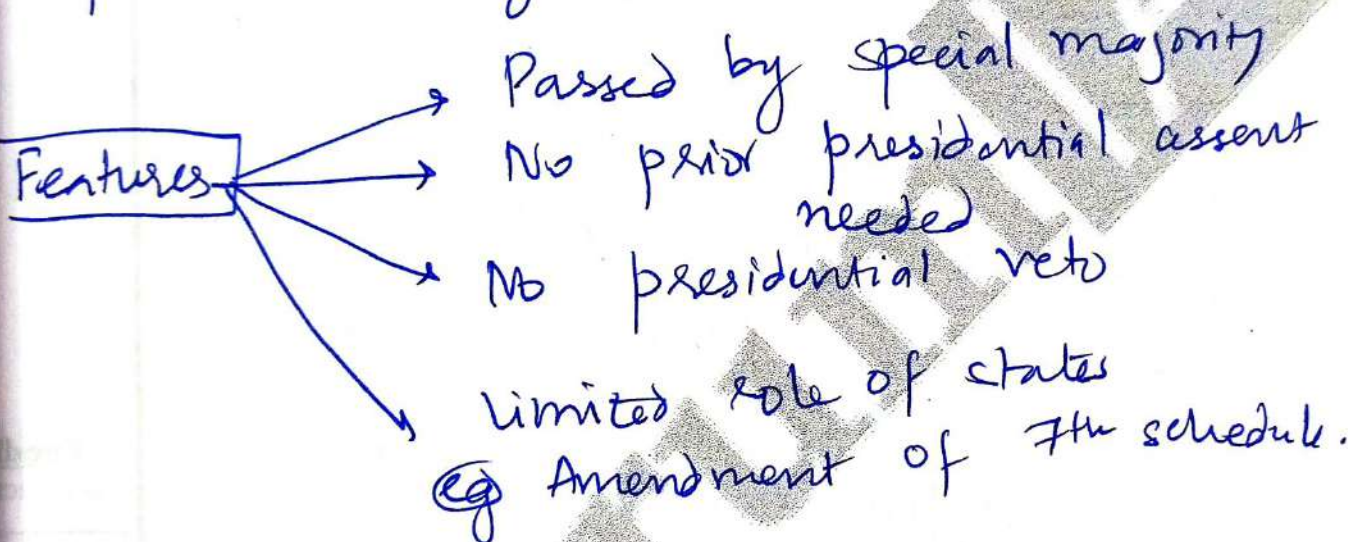 Features
Passed by special majority
No prior presidential assent
needed
No presidential veto
Limited role of states
eg Amendment of 7th schedule.